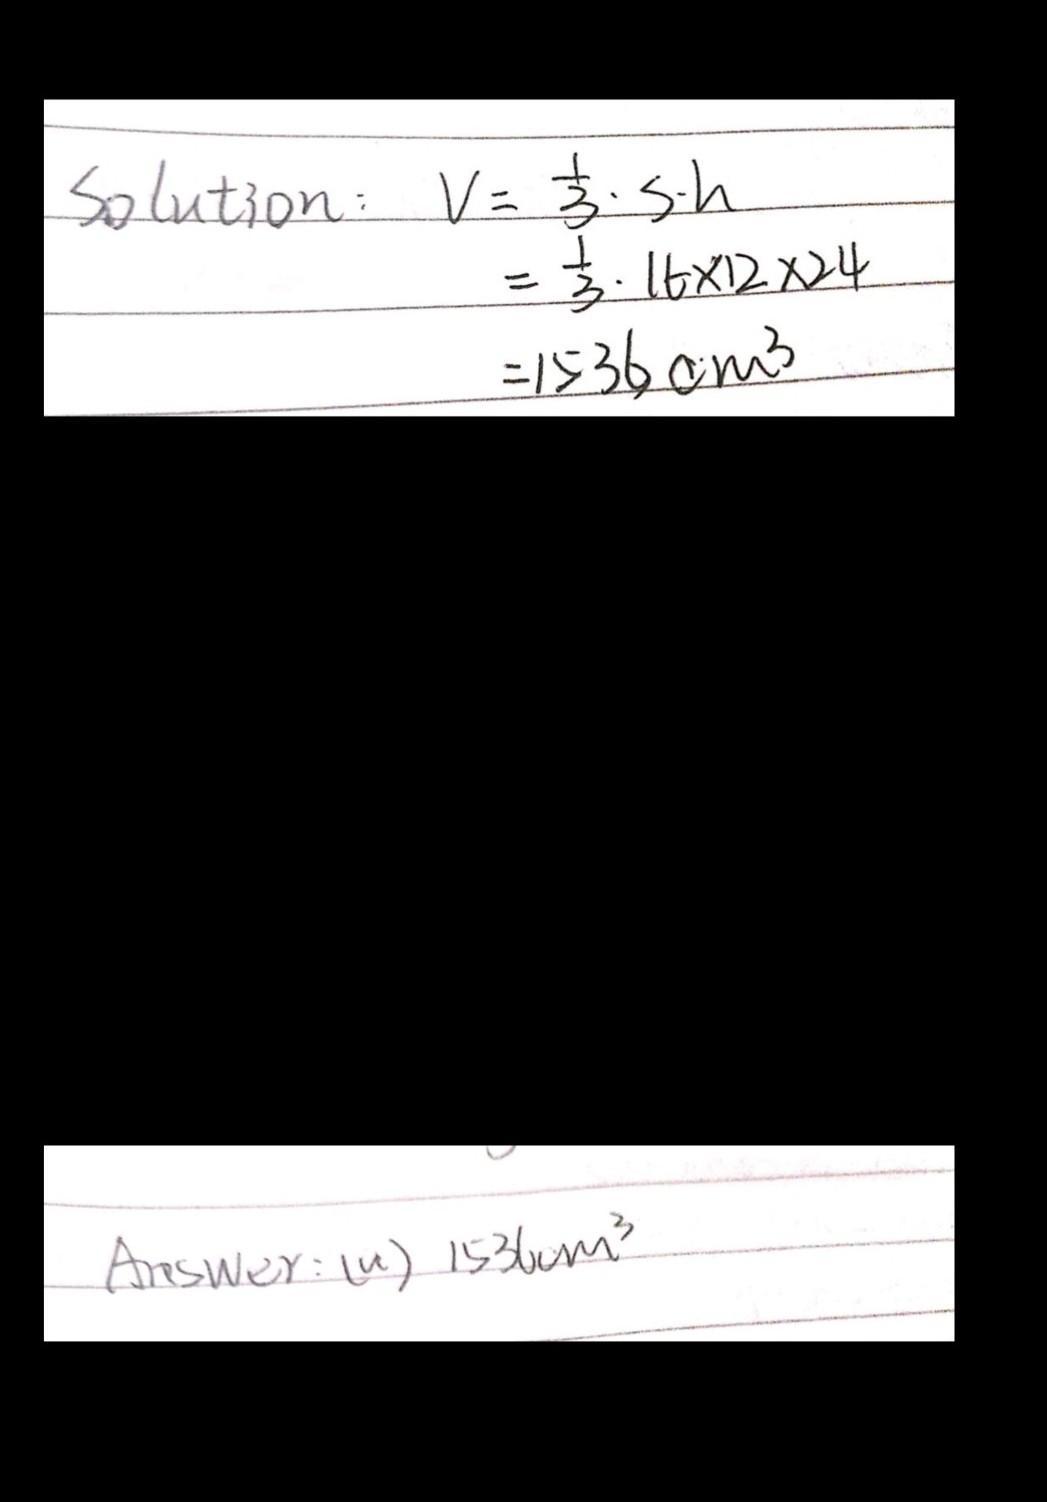 Solution: V = 1/3 · S·h
= 1/3 · 16×12×24
=1536 cm³
Answer: (a) 1536cm³